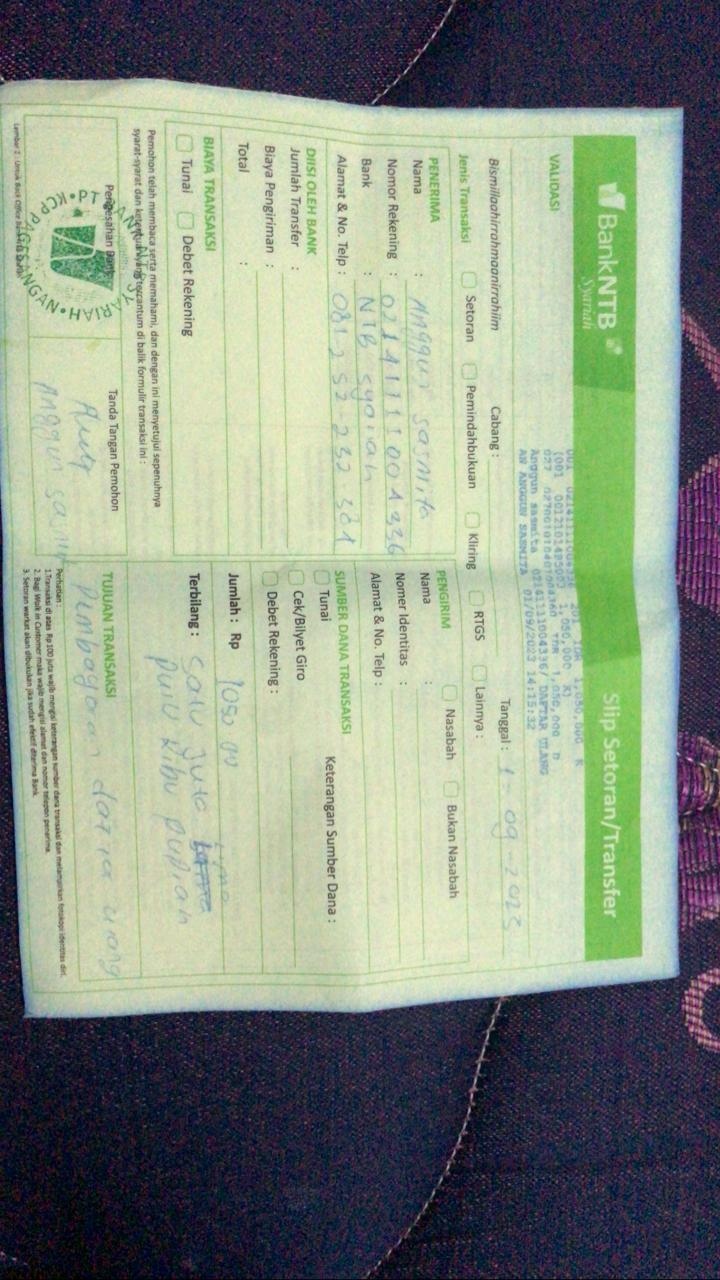 BankNTB
Syariah
Slip Setoran/Transfer
VALIDASI
201 IDR 1,050,000 K
1,050,000 K)
IDR 1,050,000 D
Anggun sasmita 02141111004336/ DAFTAR ULANG
AN ANGGUN SASMITA 01/09/2023 14:15:32
Bismillaahirrahmaanirrahiim
Cabang :
Tanggal : 1 - 09 - 2023
Jenis Transaksi
Setoran
Pemindahbukuan
Kliring
RTGS
Lainnya :
PENERIMA
Nama : Anggun sasmita
Nomor Rekening : 02141111004336
Bank : NTB syariah
Alamat & No. Telp : 081-2 52-232 381
PENGIRIM
Nasabah
Bukan Nasabah
Nama :
Nomer Identitas :
Alamat & No. Telp :
DIISI OLEH BANK
Jumlah Transfer :
Biaya Pengiriman :
Total :
SUMBER DANA TRANSAKSI
Tunai
Cek/Bilyet Giro
Debet Rekening :
Keterangan Sumber Dana :
BIAYA TRANSAKSI
Tunai
Debet Rekening
Jumlah : Rp
Terbilang : Satu juta lima
pulu Ribu Rupiah
Pemohon telah membaca serta memahami, dan dengan ini menyetujui sepenuhnya
syarat-syarat dan ketentuan yang tercantum di balik formulir transaksi ini :
Pengesahan Bank
Tanda Tangan Pemohon
Anggun
TUJUAN TRANSAKSI
Pembayaran daftar ulang
Perhatian :
1.Transaksi di atas Rp 100 juta wajib mengisi keterangan sumber dana transaksi dan melampirkan fotokopi identitas diri.
2. Bagi Walk in Customer maka wajib mengisi alamat dan nomor telepon penerima.
3. Setoran warkat akan dibukukan jika sudah efektif diterima Bank.